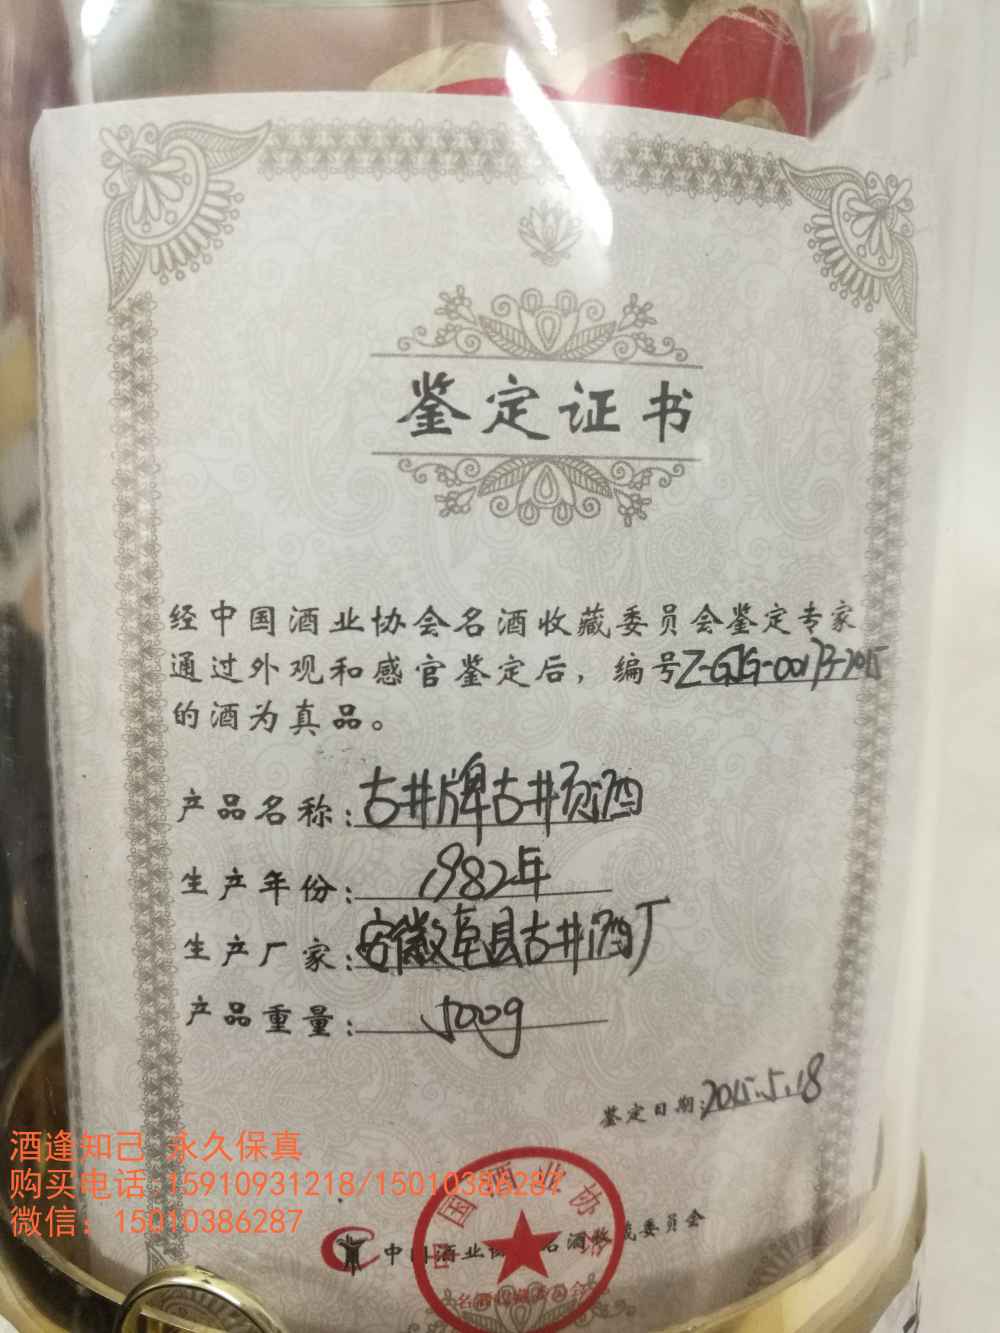 鉴定证书
经中国酒业协会名酒收藏委员会鉴定专家
通过外观和感官鉴定后，编号Z-GJG-00173-2015
的酒为真品。
产品名称：古井牌古井贡酒
生产年份：1982年
生产厂家：安徽亳县古井酒厂
产品重量：500g
鉴定日期：2015.5.18
酒逢知己 永久保真
购买电话:15910931218/15010386287
微信：15010386287
中国酒业协会名酒收藏委员会
中国酒业协会
名酒收藏委员会